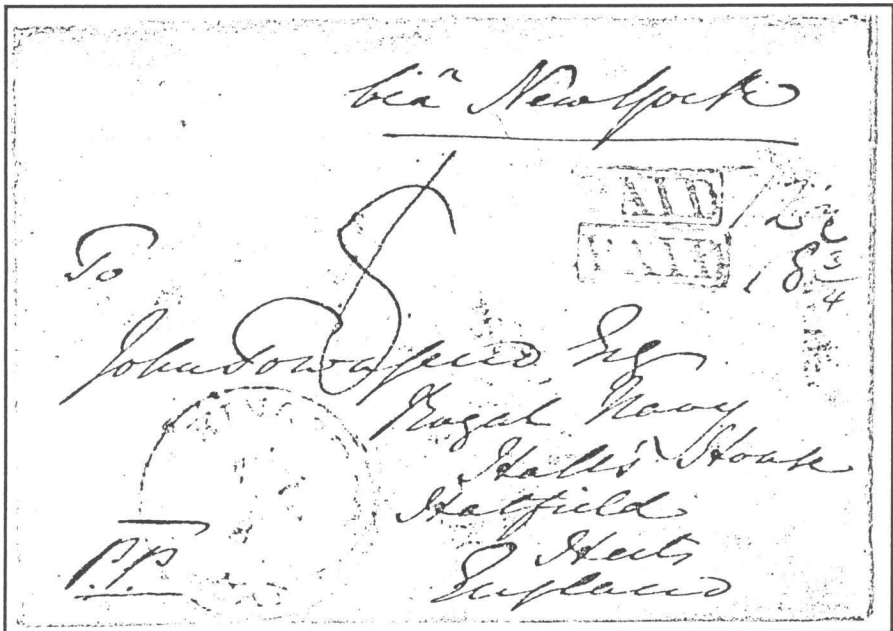 via New York
PAID
PAID
18 3/4
8
To
John Townsend Esq
Royal Navy
Hall's House
Hatfield
Herts
England
P.P.